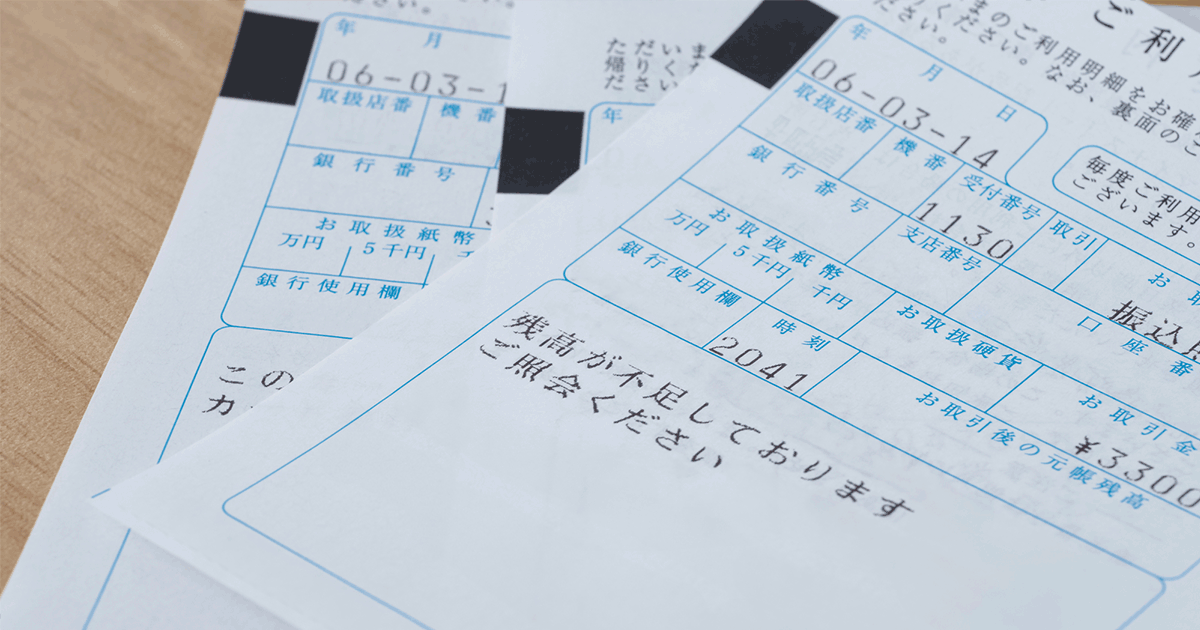 ださい。
年 月
06-03-1
取扱店番 機番
銀行番号
お取扱紙幣
万円 5千円 千
銀行使用欄
この
カ
年
ご利
まのご利用明細をお確
ください。なお、裏面のご
ださい。
年 月 日
06-03-14
毎度ご利用
ございます。
取扱店番 機番 受付番号 取引
1130
銀行番号 支店番号 口座番
振込
お取扱紙幣
万円 5千円 千円 お取扱硬貨 お取引金
¥3300
銀行使用欄 時刻 お取引後の元帳残高
2041
残高が不足しております
ご照会ください